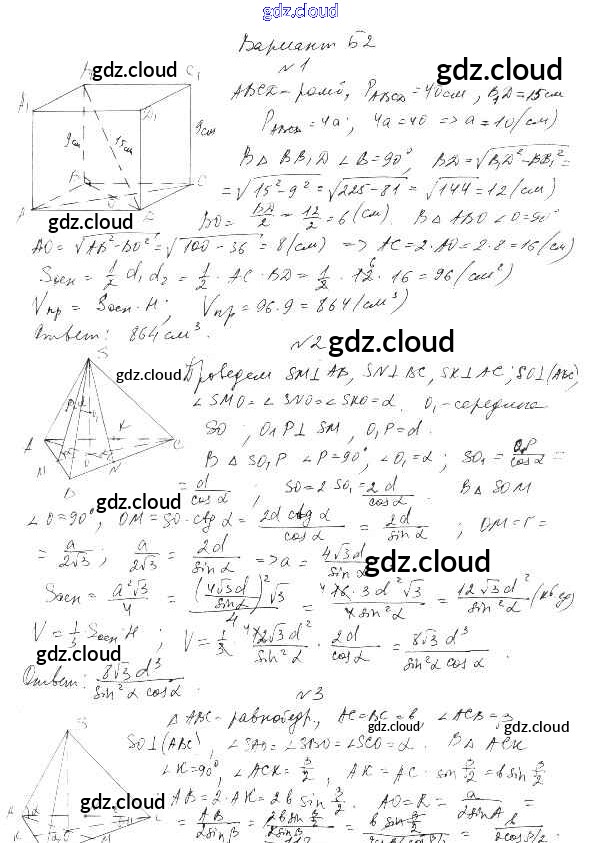 gdz.cloud
Вариант Б2
№1
gdz.cloud gdz.cloud
ABCD - ромб, P_ABCD = 40 см, B₁D = 15 см
P_ABCD = 4a; 4a = 40 => a = 10 (см)
В △ BB₁D ∠B = 90°, BD = √(B₁D² - BB₁²) =
= √(15² - 9²) = √(225 - 81) = √144 = 12 (см)
gdz.cloud
BO = BD/2 = 12/2 = 6 (см). В △ ABO ∠O = 90°
AO = √(AB² - BO²) = √(100 - 36) = 8 (см) => AC = 2·AO = 2·8 = 16 (см)
Sосн = 1/2 d₁d₂ = 1/2 · AC · BD = 1/2 · 12 · 16 = 96 (см²)
Vпр = Sосн · H; Vпр = 96 · 9 = 864 (см³)
Ответ: 864 см³.
№2 gdz.cloud
gdz.cloud Проведем SM⊥AB, SN⊥BC, SK⊥AC; SO⊥(ABC),
∠SMO = ∠SNO = ∠SKO = α. O₁ - середина
SO; O₁P ⊥ SM, O₁P = d.
В △ SO₁P ∠P = 90°, ∠O₁ = α; SO₁ = O₁P/cos α =
gdz.cloud
= d/cos α; SO = 2 SO₁ = 2d/cos α. В △ SOM
∠O = 90°, OM = SO · ctg α = 2d ctg α/cos α = 2d/sin α; OM = r =
= a/2√3; a/2√3 = 2d/sin α => a = 4√3 d/sin α
gdz.cloud
Sосн = a²√3/4 = (4√3 d/sin α)² √3/4 = 16·3 d²√3/4 sin² α = 12√3 d²/sin² α (кв ед)
V = 1/3 Sосн · H; V = 1/3 · 12√3 d²/sin² α · 2d/cos α = 8√3 d³/sin² α cos α.
gdz.cloud gdz.cloud
Ответ: 8√3 d³/sin² α cos α.
№3
△ ABC - равнобедр., AC = BC = b, ∠ACB = β
gdz.cloud gdz.cloud
SO⊥(ABC), ∠SAO = ∠SBO = ∠SCO = α. В △ ACK
∠K = 90°, ∠ACK = β/2, AK = AC · sin β/2 = b sin β/2
gdz.cloud gdz.cloud
AB = 2·AK = 2b sin β/2. AO = R = a/2sin A =
= AB/2sin β = 2b sin β/2